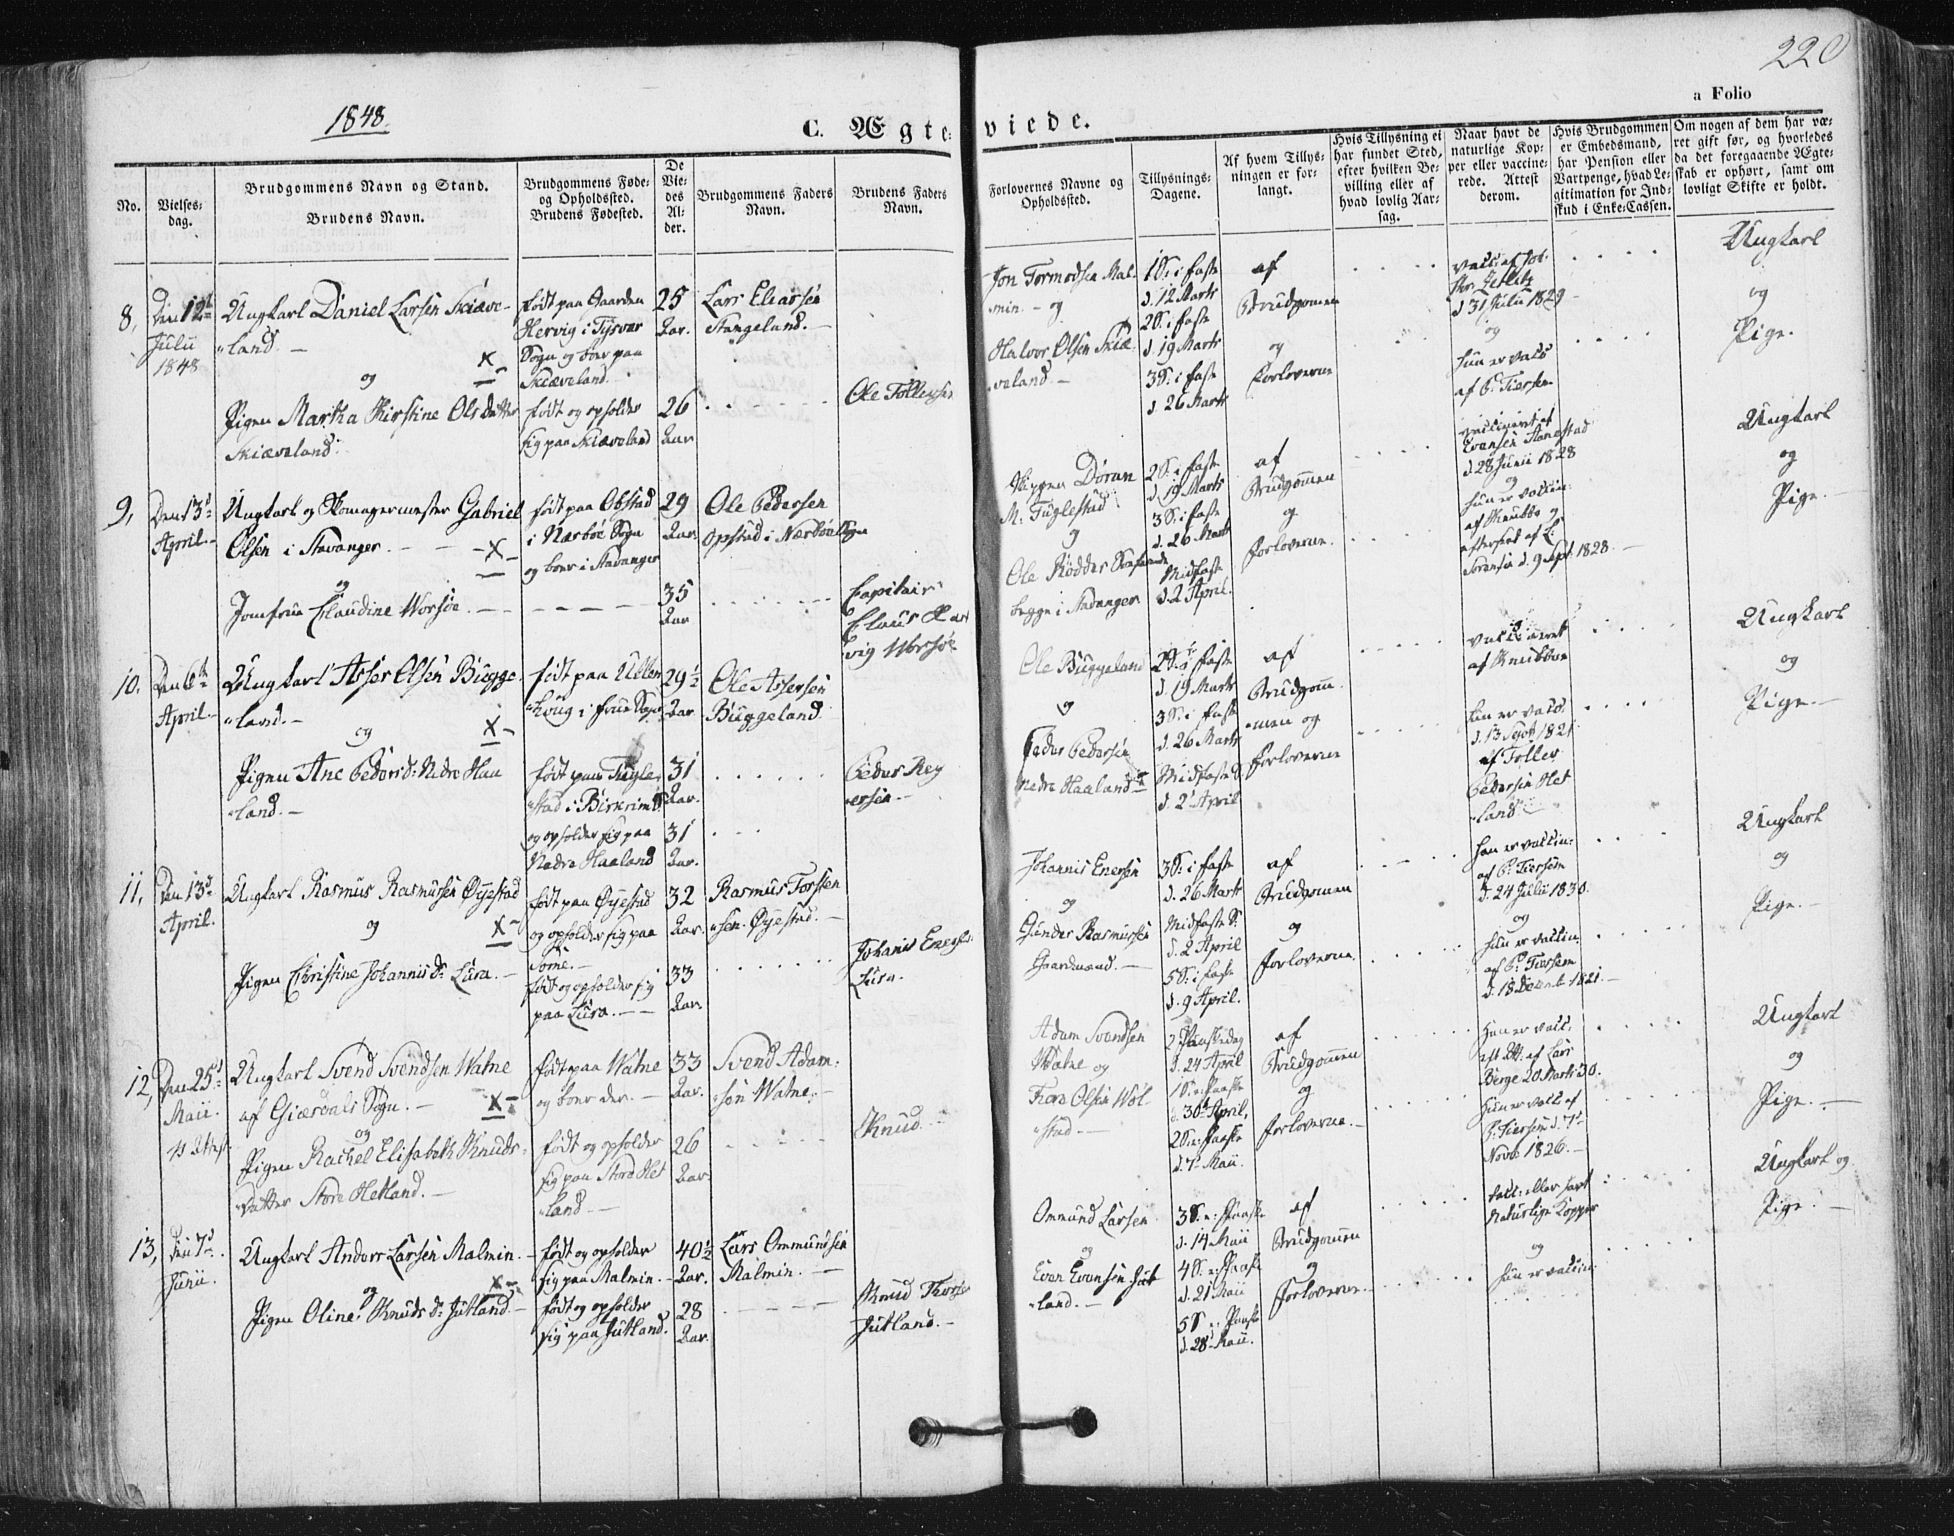 220
a Folio
1848.
C. Ægte-
viede.
No.
Vielses-
dag.
Brudgommens Navn og Stand.
Brudens Navn.
Brudgommens Føde-
og Opholdssted.
Brudens Fødested.
De
Vie-
des
Al-
der.
Brudgommens Faders
Navn.
Brudens Faders
Navn.
Forlovernes Navne og
Opholdssted.
Tillysnings-
Dagene.
Af hvem Tillys-
ningen er for-
langt.
Hvis Tillysning ei
har fundet Sted,
efter hvilken Be-
villing eller af
hvad lovlig Aar-
sag.
Naar havt de
naturlige Kop-
per eller vaccine-
rede. Attest
derom.
Hvis Brudgommen
er Embedsmand,
har Pension eller
Vartpenge, hvad Le-
gitimation for Ind-
skud i Enke-Cassen.
Om nogen af dem har væ-
ret gift før, og hvorledes
da det foregaaende Ægte-
skab er ophørt, samt om
lovligt Skifte er holdt.
8,
Den 12te
Julii
1848
Ungkarl Daniel Larsen Skiæve-
land. —
og
Pigen Martha Kirstine Olsdatter
Skiæveland.
født paa Gaarden
Hervig i Tysvær
Sogn og boer paa
Skiæveland.
født og opholder
sig paa Skiæveland
25
Aar.
26
Aar
Lars Eliassen
Stangeland. —
Ole Tollefsen
Jon Tormodsen Mal-
min. — og
Halvor Olsen Skiæ-
veland —
1 S: i faste
d. 12 Marts
2 S: i faste
d. 19 Marts
3 S: i faste
d. 26 Marts
af
Brudgomen
og
forloverne
d 31 Julii 1829
og
hun er vacc
af P. Tiersen
Ungkarl
og
Pige.
9,
Den 13d
April.
Ungkarl og Skomagermester Gabriel
Olsen i Stavanger. —
og
Jomfrue Claudine Worsøe. —
født paa Obstad
i Nærboe Sogn
og boer i Stavanger
29
Aar
35
Aar
Ole Pedersen
Opstad i Nærboe Sogn
Capitain
Claus
Worsøe
Døran
M. Fuglestad
og
Ole Rødder
begge i Stavanger
2 S: i faste
d. 19 Marts
3 S: i faste
d. 26 Marts
Midfaste
d. 2 April.
af
Brudgommen
og
forloverne.
vaccineret af
Evensen Aanestad
d. 28 Junii 1828
og
hun er vaccin:
af Knubbe og
Sørensen d. 9 Sept 1828. —
Ungkarl
og
Pige. —
10.
Den 6te
April. —
Ungkarl Asser Olsen Bügge-
land. —
og
Pigen Ane Pedersd: Nedre Haa
land. —
født paa Ullen
houg i frue Sogn
født paa Fugle
stad i Birkrim S
og opholder sig paa
Nedre Haaland
29½
Aar
31
Aar.
31
Aar.
Ole Assersen
Büggeland
Peder Rey
ersen. —
Ole Büggeland
og
Peder Pedersen
Nedre Haaland
2 S: i faste
d. 19 Marts
3 S: i faste
d. 26 Marts
Midfaste S.
d. 2 April
af
Brudgom-
men og
forloverne
vaccineret
af Knubbe
hun er vacc.
d. 13 Sept 1821
af Tollev
Pedersen Het
land
Ungkarl
og
Pige. —
11,
Den 13d
April.
Ungkarl Rasmus Rasmusen Øyestad
og
Pigen Christine Johannisd: Lura. —
født paa Øyestad
og opholder sig paa
Søme. —
født og opholder sig
paa Lura. —
32
Aar.
33
Aar.
Rasmus Torsten
sen. Øyestad. —
Johanis Eners
Lura.
Johannis Enersen
og
Gunder Rasmussen
Gaardmand. —
3 S: i faste
d. 26 Marts
Midfaste S.
d. 2 April
5 S: i faste
d. 9 April.
af
Brudgomen
og
forloverne
han er vaccin:
af P. Tiersen
d. 24 Julii 1830.
og
hun er vaccin.
af P. Tiersen
d. 18 Decemb 1821. —
Ungkarl
og
Pige. —
12,
Den 25d
Maii.
Ungkarl Svend Svendsen Watne
af Giæsdals Sogn. —
og
Pigen Rachel Elisabeth Knuds-
datter Store Hetland. —
født paa Watne
og boer der. —
født og opholder
sig paa Store Het
land —
33
Aar.
26
Aar.
Svend Adam-
sen Watne. —
Knud
Adam Svendsen
Watne og
Tore Olsen Wol-
stad. —
2 Paaskedag
d. 24 April
1 S: e: Paaske
d. 30te April,
2 S: e: Paaske
d. 7de Maii.
af
Brudgommen
og
forloverne. —
Han er vacc:
af Lars
Berge 20 Marts 30.
hun er vacc af
P. Tiersen d. 7d
Novb 1826. —
Ungkarl
og
Pige. —
13,
Den 7d
Junii.
Ungkarl Anders Larsen Malmin. —
og
Pigen Oline Knudsd: Jutland —
født og opholder
sig paa Malmin. —
født og opholder
sig paa Jutland.
40½
Aar.
28
Aar.
Lars Ommundsen
Malmin. —
Knud
Jutland. —
Ommund Larsen
og
Even Evensen Jut
land. —
3 S: e: Paaske
d. 14 Maii
4 S: e: Paaske
d. 21 Maii
5 S: e: Paaske
d. 28 Maii.
af
Brudgommen
og
forloverne. —
vacc: eller havt
Naturlige Kopper
og
hun er vaccin:
Ungkarl og
Pige. —